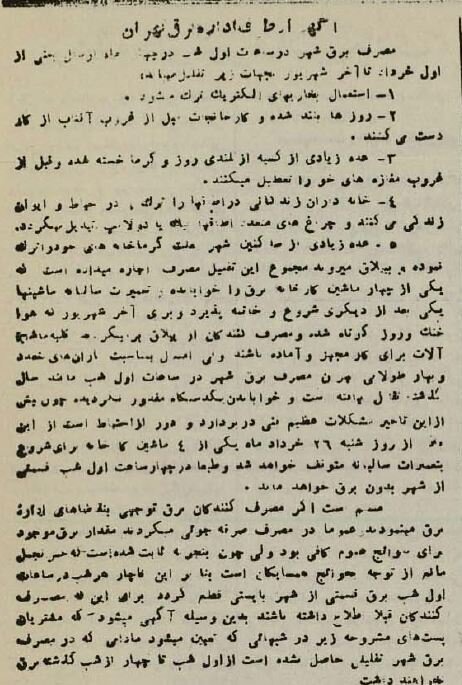 آگهی از طرف اداره برق تهران
مصرف برق شهر در ساعات اول شب در چهار ماه از سال یعنی از
اول خرداد تا آخر شهریور بجهات زیر تقلیل مییابد
۱- استعمال بخاریهای الکتریک ترک میشود .
۲- روز ها بلند شده و کارخانجات قبل از غروب آفتاب از کار
دست می کنند .
۳- عده زیادی از کسبه از بلندی روز و گرما خسته شده و قبل از
غروب مغازه های خود را تعطیل میکنند .
۴- خانه داران زندگانی در اطاقها را ترک و در حیاط و ایوان
زندگی می کنند و چراغ های متعدد اطاقها بیک یا دو لامپ تبدیل میگردد.
۵- عده زیادی از ساکنین شهر بعلت گرما خانه های خود را ترک
نموده و به ییلاق میروند مجموع این تقلیل مصرف اجازه میداده است که
یکی از چهار ماشین کارخانه برق را خوابانده و تعمیرات سالیانه ماشینها
یکی بعد از دیگری شروع و خاتمه پذیرد و برای آخر شهریور که هوا
خنک و روز کوتاه شده و مصرف کنندگان از ییلاق بر میگردند کلیه ماشین
آلات برای کار مجهز و آماده باشند ولی امسال بمناسبت بارانهای ممتد
و بهار طولانی تهران مصرف برق شهر در ساعات اول شب مانند سال
گذشته تقلیل نیافته است و خواباندن یکدستگاه مقدور نگردیده چون بیش
از این تاخیر مشکلات عظیم فنی در بر دارد و دور از احتیاط است از این
از روز شنبه ۲۶ خرداد ماه یکی از ۴ ماشین کارخانه برای شروع
بتعمیرات سالیانه متوقف خواهد شد و قطعا در چهار ساعت اول شب قسمتی
از شهر بدون برق خواهد ماند .
مسلم است اگر مصرف کنندگان برق توجهی بتقاضاهای اداره
برق مینمودند و عموما در مصرف صرفه جوئی میکردند مقدار برق موجود
برای حوائج عموم کافی بود ولی چون بتجربه ثابت شده است که
مانع از توجه حوائج همسایگان است بنا بر این ناچار هر شب در ساعات
اول شب برق قسمتی از شهر بایستی قطع گردد برای این که مصرف
کنندگان قبلا اطلاع داشته باشند بدین وسیله آگهی میشود که مشتریان
پست‌های مشروحه زیر در شبهائی که تعیین میشود مادامی که در مصرف
برق شهر تقلیلی حاصل نشده است از اول شب تا چهار از شب گذشته برق
نخواهند داشت